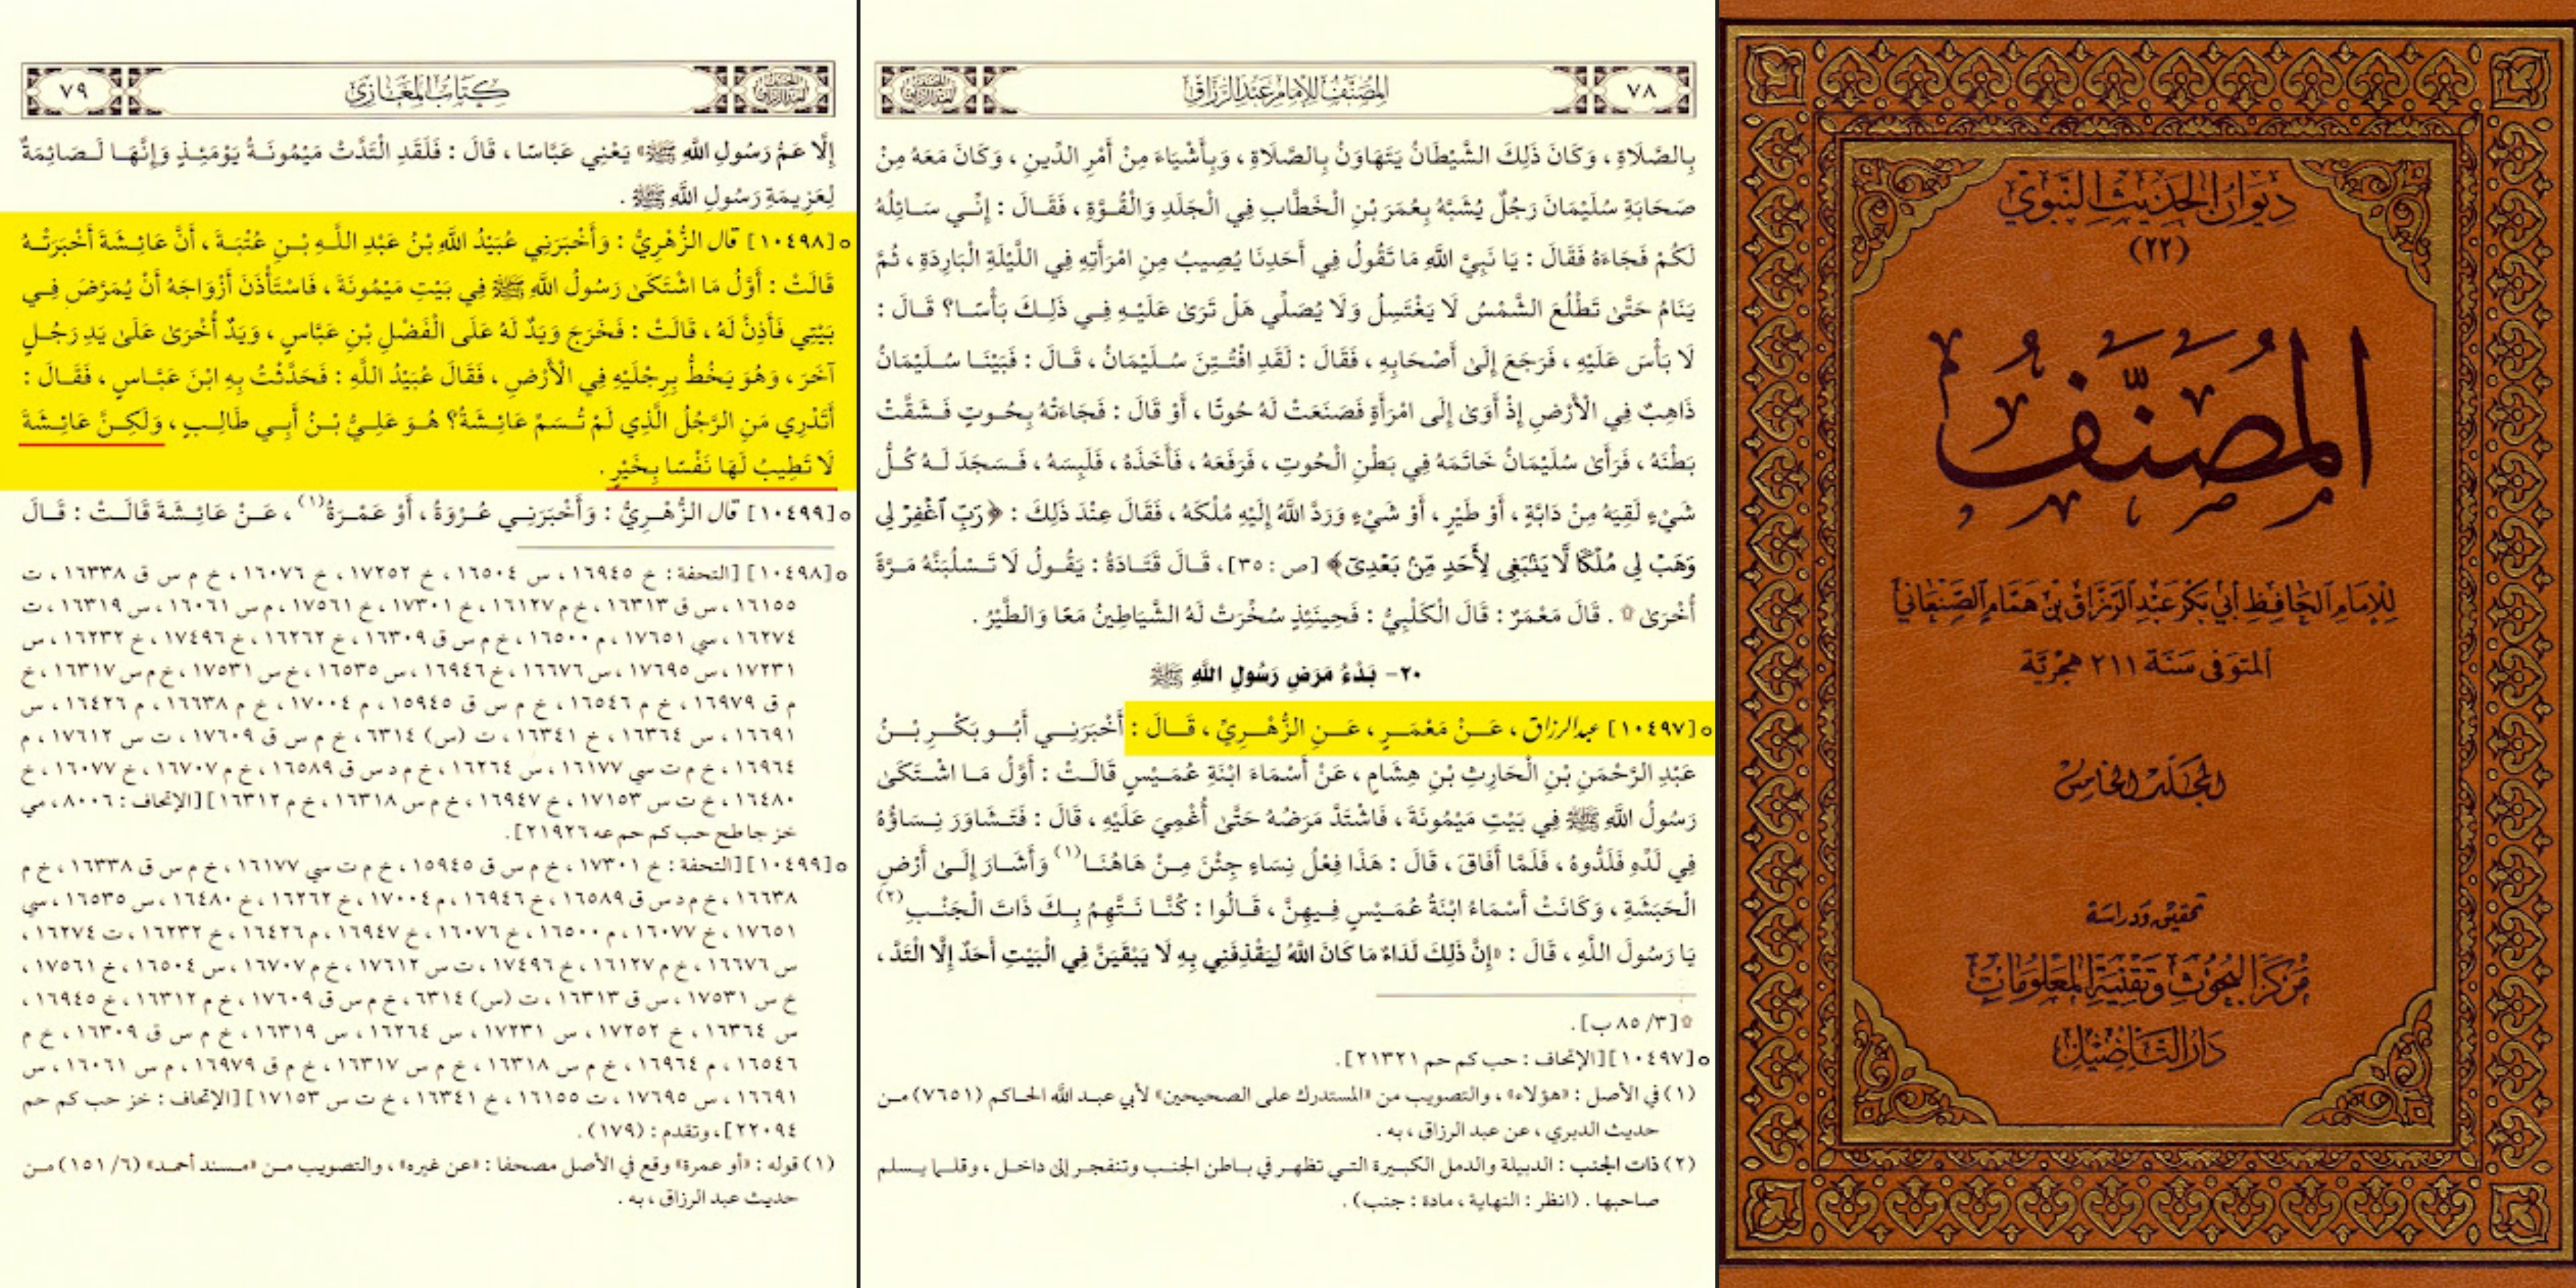 ديوان الحديث النبوي
(٢٢)
المصنف
للإمام الحافظ أبي بكر عبد الرزاق بن همام الصنعاني
المتوفى سنة ٢١١ هجرية
المجلد الخامس
تحقيق ودراسة
مركز البحوث وتقنية المعلومات
دار التأصيل
٧٨
المصنف للإمام عبد الرزاق
بِالصَّلَاةِ ، وَكَانَ ذَلِكَ الشَّيْطَانُ يَتَهَاوَنُ بِالصَّلَاةِ ، وَبِأَشْيَاءَ مِنْ أَمْرِ الدِّينِ ، وَكَانَ مَعَهُ مِنْ
صَحَابَةِ سُلَيْمَانَ رَجُلٌ يُشَبَّهُ بِعُمَرَ بْنِ الْخَطَّابِ فِي الْجَلَدِ وَالْقُوَّةِ ، فَقَالَ : إِنِّي سَائِلُهُ
لَكُمْ فَجَاءَهُ فَقَالَ : يَا نَبِيَّ اللَّهِ مَا تَقُولُ فِي أَحَدِنَا يُصِيبُ مِنِ امْرَأَتِهِ فِي اللَّيْلَةِ الْبَارِدَةِ ، ثُمَّ
يَنَامُ حَتَّى تَطْلُعَ الشَّمْسُ لَا يَغْتَسِلُ وَلَا يُصَلِّي هَلْ تَرَى عَلَيْهِ فِي ذَلِكَ بَأْسًا؟ قَالَ :
لَا بَأْسَ عَلَيْهِ ، فَرَجَعَ إِلَى أَصْحَابِهِ ، فَقَالَ : لَقَدِ افْتُتِنَ سُلَيْمَانُ ، قَالَ : فَبَيْنَا سُلَيْمَانُ
ذَاهِبٌ فِي الْأَرْضِ إِذْ أَوَى إِلَى امْرَأَةٍ فَصَنَعَتْ لَهُ حُوتًا ، أَوْ قَالَ : فَجَاءَتْهُ بِحُوتٍ فَشَقَّتْ
بَطْنَهُ ، فَرَأَى سُلَيْمَانُ خَاتَمَهُ فِي بَطْنِ الْحُوتِ ، فَرَفَعَهُ ، فَأَخَذَهُ ، فَلَبِسَهُ ، فَسَجَدَ لَهُ كُلُّ
شَيْءٍ لَقِيَهُ مِنْ دَابَّةٍ ، أَوْ طَيْرٍ ، أَوْ شَيْءٍ وَرَدَّ اللَّهُ إِلَيْهِ مُلْكَهُ ، فَقَالَ عِنْدَ ذَلِكَ : ﴿رَبِّ ٱغْفِرْ لِي
وَهَبْ لِي مُلْكًا لَّا يَنۢبَغِي لِأَحَدٍ مِّنۢ بَعْدِيٓ﴾ [ص : ٣٥] ، قَالَ قَتَادَةُ : يَقُولُ لَا تَسْلُبَنَّهُ مَرَّةً
أُخْرَى ۞ . قَالَ مَعْمَرٌ : قَالَ الْكَلْبِيُّ : فَحِينَئِذٍ سُخِّرَتْ لَهُ الشَّيَاطِينُ مَعًا وَالطَّيْرُ .
٢٠- بَدْءُ مَرَضِ رَسُولِ اللَّهِ ﷺ
○ [١٠٤٩٧] عبد الرزاق ، عَنْ مَعْمَرٍ ، عَنِ الزُّهْرِيِّ ، قَالَ : أَخْبَرَنِي أَبُو بَكْرِ بْنُ
عَبْدِ الرَّحْمَنِ بْنِ الْحَارِثِ بْنِ هِشَامٍ ، عَنْ أَسْمَاءَ ابْنَةِ عُمَيْسٍ قَالَتْ : أَوَّلُ مَا اشْتَكَى
رَسُولُ اللَّهِ ﷺ فِي بَيْتِ مَيْمُونَةَ ، فَاشْتَدَّ مَرَضُهُ حَتَّى أُغْمِيَ عَلَيْهِ ، قَالَ : فَتَشَاوَرَ نِسَاؤُهُ
فِي لَدِّهِ فَلَدُّوهُ ، فَلَمَّا أَفَاقَ ، قَالَ : هَذَا فِعْلُ نِسَاءٍ جِئْنَ مِنْ هَاهُنَا(١) وَأَشَارَ إِلَى أَرْضِ
الْحَبَشَةِ ، وَكَانَتْ أَسْمَاءُ ابْنَةُ عُمَيْسٍ فِيهِنَّ ، قَالُوا : كُنَّا نَتَّهِمُ بِكَ ذَاتَ الْجَنْبِ(٢)
يَا رَسُولَ اللَّهِ ، قَالَ : «إِنَّ ذَلِكَ لَدَاءٌ مَا كَانَ اللَّهُ لِيَقْذِفَنِي بِهِ لَا يَبْقَيَنَّ فِي الْبَيْتِ أَحَدٌ إِلَّا الْتَدَّ ،
۞ [٣/ ٨٥ ب] .
○ [١٠٤٩٧] [الإتحاف : حب كم حم ٢١٣٢١] .
(١) في الأصل : «هؤلاء» ، والتصويب من «المستدرك على الصحيحين» لأبي عبد الله الحاكم (٧٦٥١) من
حديث الدبري ، عن عبد الرزاق ، به .
(٢) ذات الجنب : الدبيلة والدمل الكبيرة التي تظهر في باطن الجنب وتنفجر إلى داخل ، وقلما يسلم
صاحبها . (انظر : النهاية ، مادة : جنب) .
كتاب المغازي
٧٩
إِلَّا عَمُّ رَسُولِ اللَّهِ ﷺ» يَعْنِي عَبَّاسًا ، قَالَ : فَلَقَدِ الْتَدَّتْ مَيْمُونَةُ يَوْمَئِذٍ وَإِنَّهَا لَصَائِمَةٌ
لِعَزِيمَةِ رَسُولِ اللَّهِ ﷺ .
○ [١٠٤٩٨] قال الزُّهْرِيُّ : وَأَخْبَرَنِي عُبَيْدُ اللَّهِ بْنُ عَبْدِ اللَّهِ بْنِ عُتْبَةَ ، أَنَّ عَائِشَةَ أَخْبَرَتْهُ
قَالَتْ : أَوَّلُ مَا اشْتَكَى رَسُولُ اللَّهِ ﷺ فِي بَيْتِ مَيْمُونَةَ ، فَاسْتَأْذَنَ أَزْوَاجَهُ أَنْ يُمَرَّضَ فِي
بَيْتِي فَأَذِنَّ لَهُ ، قَالَتْ : فَخَرَجَ وَيَدٌ لَهُ عَلَى الْفَضْلِ بْنِ عَبَّاسٍ ، وَيَدٌ أُخْرَى عَلَى يَدِ رَجُلٍ
آخَرَ ، وَهُوَ يَخُطُّ بِرِجْلَيْهِ فِي الْأَرْضِ ، فَقَالَ عُبَيْدُ اللَّهِ : فَحَدَّثْتُ بِهِ ابْنَ عَبَّاسٍ ، فَقَالَ :
أَتَدْرِي مَنِ الرَّجُلُ الَّذِي لَمْ تُسَمِّ عَائِشَةُ؟ هُوَ عَلِيُّ بْنُ أَبِي طَالِبٍ ، وَلَكِنَّ عَائِشَةَ
لَا تَطِيبُ لَهَا نَفْسًا بِخَيْرٍ .
○ [١٠٤٩٩] قال الزُّهْرِيُّ : وَأَخْبَرَنِي عُرْوَةُ ، أَوْ عَمْرَةُ(١) ، عَنْ عَائِشَةَ قَالَتْ : قَالَ
○ [١٠٤٩٨] [التحفة : خ ١٦٩٤٥ ، س ١٦٥٠٤ ، خ ١٧٢٥٢ ، خ ١٦٠٧٦ ، خ م س ق ١٦٣٣٨ ، ت
١٦١٥٥ ، س ق ١٦٣١٣ ، خ م ١٦١٢٧ ، خ ١٧٣٠١ ، خ ١٧٥٦١ ، م س ١٦٠٦١ ، س ١٦٣١٩ ، ت
١٦٢٧٤ ، سي ١٧٦٥١ ، م ١٦٥٠٠ ، خ م س ق ١٦٣٠٩ ، خ ١٦٢٦٢ ، خ ١٧٤٩٦ ، خ ١٦٢٣٢ ، س
١٧٢٣١ ، س ١٧٦٩٥ ، س ١٦٦٧٦ ، خ ١٦٩٤٦ ، س ١٦٥٣٥ ، خ س ١٧٥٣١ ، خ م س ١٦٣١٧ ، خ
م ق ١٦٩٧٩ ، خ م ١٦٥٤٦ ، خ م س ق ١٥٩٤٥ ، م ١٧٠٠٤ ، خ م ١٦٦٣٨ ، م ١٦٤٢٦ ، س
١٦٦٩١ ، س ١٦٣٦٤ ، خ ١٦٣٤١ ، ت (س) ٦٣١٤ ، خ م س ق ١٧٦٠٩ ، ت س ١٧٦١٢ ، م
١٦٩٦٤ ، خ م ت سي ١٦١٧٧ ، س ١٦٢٦٤ ، خ م د س ق ١٦٥٨٩ ، خ م ١٦٧٠٧ ، خ ١٦٠٧٧ ، خ
١٦٤٨٠ ، خ ت س ١٧١٥٣ ، خ ١٦٩٤٧ ، خ م س ١٦٣١٨ ، خ م ١٦٣١٢] [الإتحاف : ٨٠٠٦ ، مي
خز جا طح حب كم حم عه ٢١٩٢٦] .
○ [١٠٤٩٩] [التحفة : خ ١٧٣٠١ ، خ م س ق ١٥٩٤٥ ، خ م ت سي ١٦١٧٧ ، خ م س ق ١٦٣٣٨ ، خ م
١٦٦٣٨ ، خ م د س ق ١٦٥٨٩ ، خ ١٦٩٤٦ ، م ١٧٠٠٤ ، خ ١٦٢٦٢ ، خ ١٦٤٨٠ ، س ١٦٥٣٥ ، سي
١٧٦٥١ ، خ ١٦٠٧٧ ، م ١٦٥٠٠ ، خ ١٦٠٧٦ ، خ ١٦٩٤٧ ، م ١٦٤٢٦ ، خ ١٦٢٣٢ ، ت ١٦٢٧٤ ،
س ١٦٦٧٦ ، خ م ١٦١٢٧ ، خ ١٧٤٩٦ ، ت س ١٧٦١٢ ، خ م ١٦٧٠٧ ، س ١٦٥٠٤ ، خ ١٧٥٦١ ،
خ س ١٧٥٣١ ، س ق ١٦٣١٣ ، ت (س) ٦٣١٤ ، خ م س ق ١٧٦٠٩ ، خ م ١٦٣١٢ ، خ ١٦٩٤٥ ،
س ١٦٣٦٤ ، خ ١٧٢٥٢ ، س ١٧٢٣١ ، س ١٦٢٦٤ ، س ١٦٣١٩ ، خ م س ق ١٦٣٠٩ ، خ م
١٦٥٤٦ ، م ١٦٩٦٤ ، خ م س ١٦٣١٨ ، خ م س ١٦٣١٧ ، خ م ق ١٦٩٧٩ ، م س ١٦٠٦١ ، س
١٦٦٩١ ، س ١٧٦٩٥ ، ت ١٦١٥٥ ، خ ١٦٣٤١ ، خ ت س ١٧١٥٣] [الإتحاف : خز حب كم حم
٢٢٠٩٤] ، وتقدم : (١٧٩) .
(١) قوله : «أو عمرة» وقع في الأصل مصحفا : «عن غيره» ، والتصويب من «مسند أحمد» (٦/ ١٥١) من
حديث عبد الرزاق ، به .